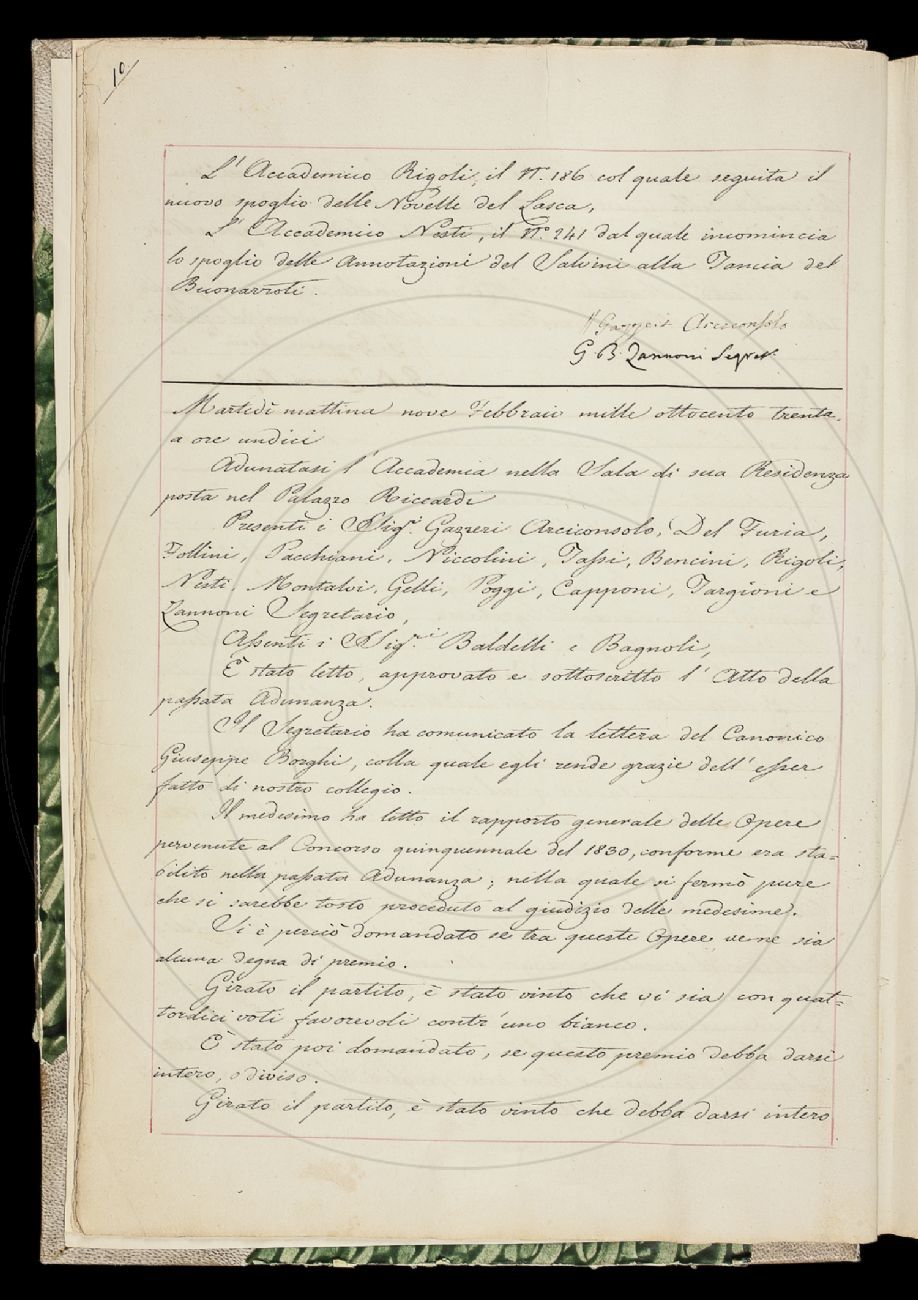 10
L' Accademico Rigoli, il N.° 186 col quale seguita il
nuovo spoglio delle Novelle del Lasca,
L' Accademico Nesti, il N.° 241 dal quale incomincia
lo spoglio delle Annotazioni del Salvini alla Tancia del
Buonarroti.
Gazzeri Arciconsolo
G B. Zannoni Segret.
Martedì mattina nove Febbraio mille ottocento trenta.
a ore undici
Adunatasi l' Accademia nella Sala di sua Residenza
posta nel Palazzo Riccardi
Presenti i SSig.ri Gazzeri Arciconsolo, Del Furia,
Follini, Pacchiani, Niccolini, Tassi, Bencini, Rigoli,
Nesti, Montalvi, Gelli, Poggi, Capponi, Targioni e
Zannoni Segretario,
Assenti i SSig.ri Baldelli e Bagnoli,
È stato letto, approvato e sottoscritto l' Atto della
passata Adunanza.
Il Segretario ha comunicato la lettera del Canonico
Giuseppe Borghi, colla quale egli rende grazie dell' esser
fatto di nostro collegio.
Il medesimo ha letto il rapporto generale delle Opere
pervenute al Concorso quinquennale del 1830, conforme era sta=
bilito nella passata Adunanza; nella quale si fermò pure
che si sarebbe tosto proceduto al giudizio delle medesime.
Si è perciò domandato se tra queste Opere ve ne sia
alcuna degna di premio.
Girato il partito, è stato vinto che vi sia con quat=
tordici voti favorevoli contr' uno bianco.
È stato poi domandato, se questo premio debba darsi
intero, o diviso.
Girato il partito, è stato vinto che debba darsi intero